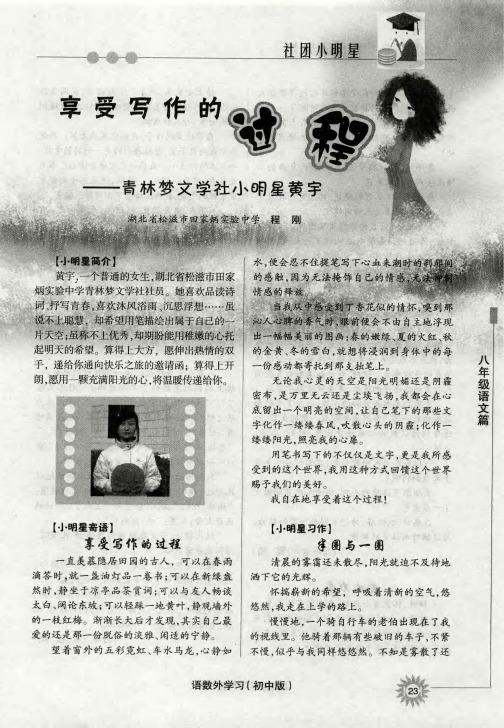 社团小明星
享受写作的过程
——青林梦文学社小明星黄宇
湖北省松滋市田家炳实验中学 程 刚
【小明星简介】
黄宇,一个普通的女生,湖北省松滋市田家
炳实验中学青林梦文学社社员。她喜欢品读诗
词、抒写青春,喜欢沐风浴雨、沉思浮想……虽
说不上聪慧,却希望用笔描绘出属于自己的一
片天空;虽称不上优秀,却期盼能用稚嫩的心托
起明天的希望。算得上大方,愿伸出热情的双
手,递给你通向快乐之旅的邀请函;算得上开
朗,愿用一颗充满阳光的心,将温暖传递给你。
【小明星寄语】
享受写作的过程
一直羡慕隐居田园的古人,可以在春雨
滴答时,就一盏油灯品一卷书;可以在新绿盎
然时,静坐于凉亭品茶赏词;可以与友人畅谈
太白、闲论东坡;可以轻踩一地黄叶,静观墙外
的一枝红梅。渐渐长大后才发现,其实自己最
爱的还是那一份脱俗的淡雅、闲适的宁静。
望着窗外的五彩霓虹、车水马龙,心静如
水,便会忍不住提笔写下心血来潮时的刹那间
的感触,因为无法掩饰自己的情感,无法抑制
情感的释放。
当我从中感受到丁香花似的情怀,嗅到那
沁人心脾的香气时,眼前便会不由自主地浮现
出一幅幅美丽的图画:春的嫩绿、夏的火红、秋
的金黄、冬的雪白,就想将浸润到身体中的每
一份感动都寄托到那支拙笔上。
无论我心灵的天空是阳光明媚还是阴霾
密布,是万里无云还是尘埃飞扬,我都会在心
底留出一个明亮的空间,让自己笔下的那些文
字化作一缕缕春风,吹散心头的阴霾;化作一
缕缕阳光,照亮我的心扉。
用笔书写下的不仅仅是文字,更是我所感
受到的这个世界,我用这种方式回馈这个世界
赐予我们的美好。
我自在地享受着这个过程!
【小明星习作】
半圆与一圆
清晨的雾霭还未散尽,阳光就迫不及待地
洒下它的光辉。
怀揣崭新的希望,呼吸着清新的空气,悠
悠然,我走在上学的路上。
慢慢地,一个骑自行车的老伯出现在了我
的视线里。他骑着那辆有些破旧的车子,不紧
不慢,似乎与我同样悠悠然。不知是雾散了还
八年级语文篇
语数外学习(初中版)
23